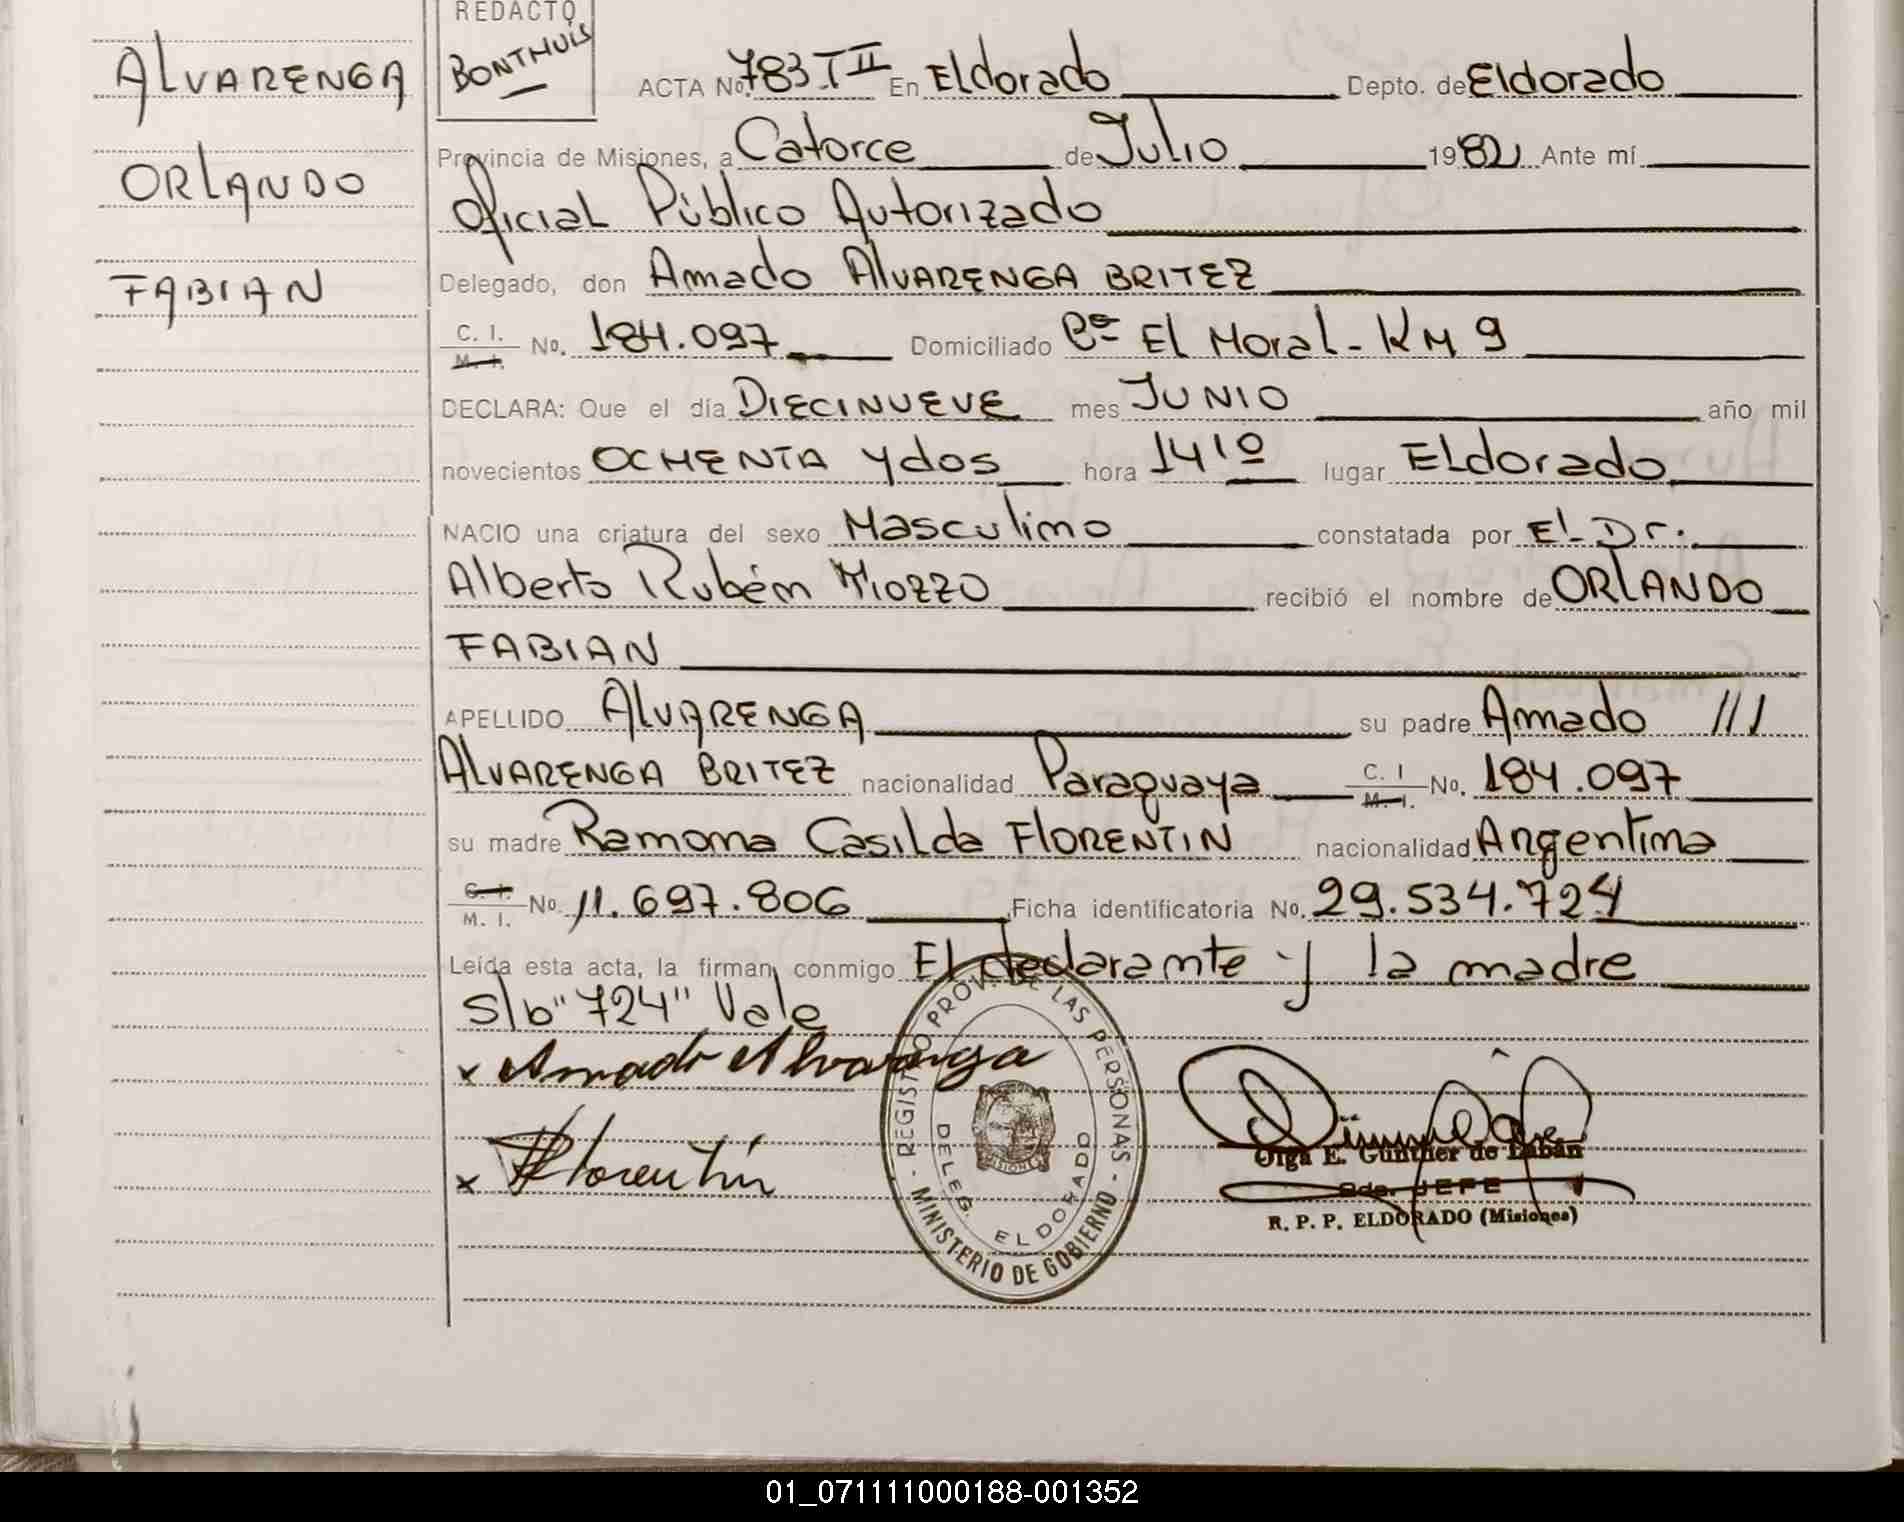 ALVARENGA
ORLANDO
FABIAN
REDACTO
BONTHUIS
ACTA No. 783 T II En Eldorado Depto. de Eldorado
Provincia de Misiones, a Catorce de Julio 1982 Ante mí
Oficial Público Autorizado
Delegado, don Amado ALVARENGA BRITEZ
C. I. M. I. No. 184.097 Domiciliado Bº El Moral - KM 9
DECLARA: Que el día DIECINUEVE mes JUNIO año mil
novecientos OCHENTA y dos hora 14 1º lugar Eldorado
NACIO una criatura del sexo Masculino constatada por El Dr.
Alberto Rubén Miozzo recibió el nombre de ORLANDO
FABIAN
APELLIDO ALVARENGA su padre Amado ///
ALVARENGA BRITEZ nacionalidad Paraguaya C. I M. I. No. 184.097
su madre Ramona Casilda FLORENTIN nacionalidad Argentina
C. I. M. I. No. 11.697.806 Ficha identificatoria No. 29.534.724
Leída esta acta, la firman conmigo El declarante y la madre
S/b "724" Vale
x Amado Alvarenga
x Florentín
REGISTRO PROV. DE LAS PERSONAS - MINISTERIO DE GOBIERNO -
DELEG. ELDORADO
MISIONES
Olga E. Günther de Labán
2da. JEFE
R. P. P. ELDORADO (Misiones)
01_071111000188-001352